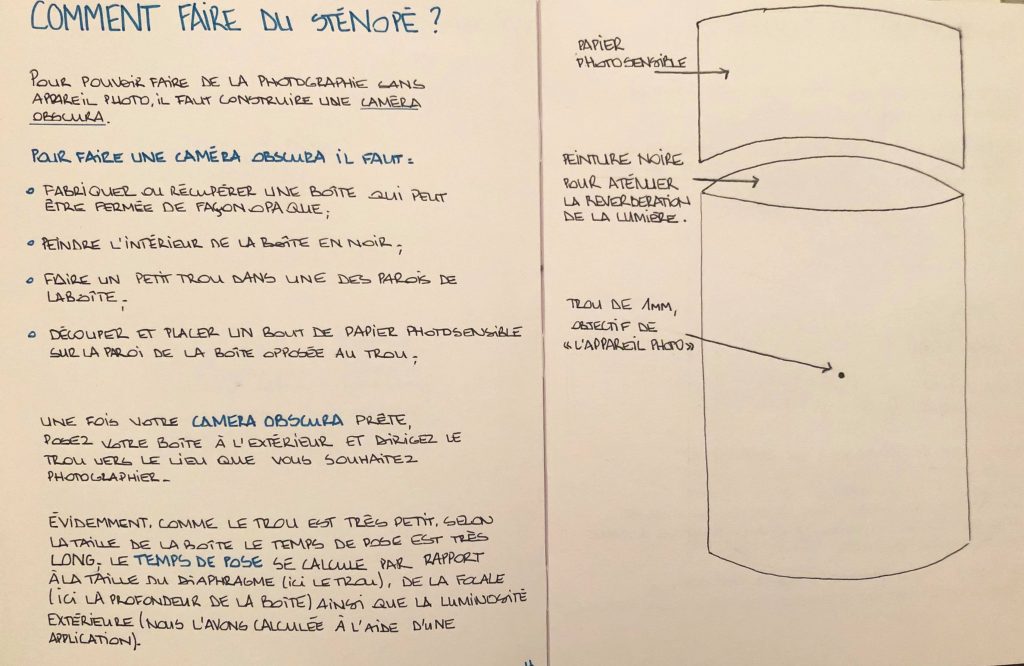 COMMENT FAIRE DU STÉNOPÉ ?
POUR POUVOIR FAIRE DE LA PHOTOGRAPHIE SANS
APPAREIL PHOTO, IL FAUT CONSTRUIRE UNE CAMÉRA
OBSCURA.
POUR FAIRE UNE CAMÉRA OBSCURA IL FAUT :
• FABRIQUER OU RÉCUPÉRER UNE BOÎTE QUI PEUT
ÊTRE FERMÉE DE FAÇON OPAQUE ;
• PEINDRE L'INTÉRIEUR DE LA BOÎTE EN NOIR ;
• FAIRE UN PETIT TROU DANS UNE DES PAROIS DE
LA BOÎTE ;
• DÉCOUPER ET PLACER UN BOUT DE PAPIER PHOTOSENSIBLE
SUR LA PAROI DE LA BOÎTE OPPOSÉE AU TROU ;
UNE FOIS VOTRE CAMERA OBSCURA PRÊTE,
POSEZ VOTRE BOÎTE À L'EXTÉRIEUR ET DIRIGEZ LE
TROU VERS LE LIEU QUE VOUS SOUHAITEZ
PHOTOGRAPHIER.
ÉVIDEMMENT, COMME LE TROU EST TRÈS PETIT, SELON
LA TAILLE DE LA BOÎTE LE TEMPS DE POSE EST TRÈS
LONG. LE TEMPS DE POSE SE CALCULE PAR RAPPORT
À LA TAILLE DU DIAPHRAGME (ICI LE TROU), DE LA FOCALE
(ICI LA PROFONDEUR DE LA BOÎTE) AINSI QUE LA LUMINOSITÉ
EXTÉRIEURE (NOUS L'AVONS CALCULÉE À L'AIDE D'UNE
APPLICATION).
PAPIER
PHOTOSENSIBLE
PEINTURE NOIRE
POUR ATÉNUER
LA REVERBERATION
DE LA LUMIÈRE.
TROU DE 1MM,
OBJECTIF DE
« L'APPAREIL PHOTO »